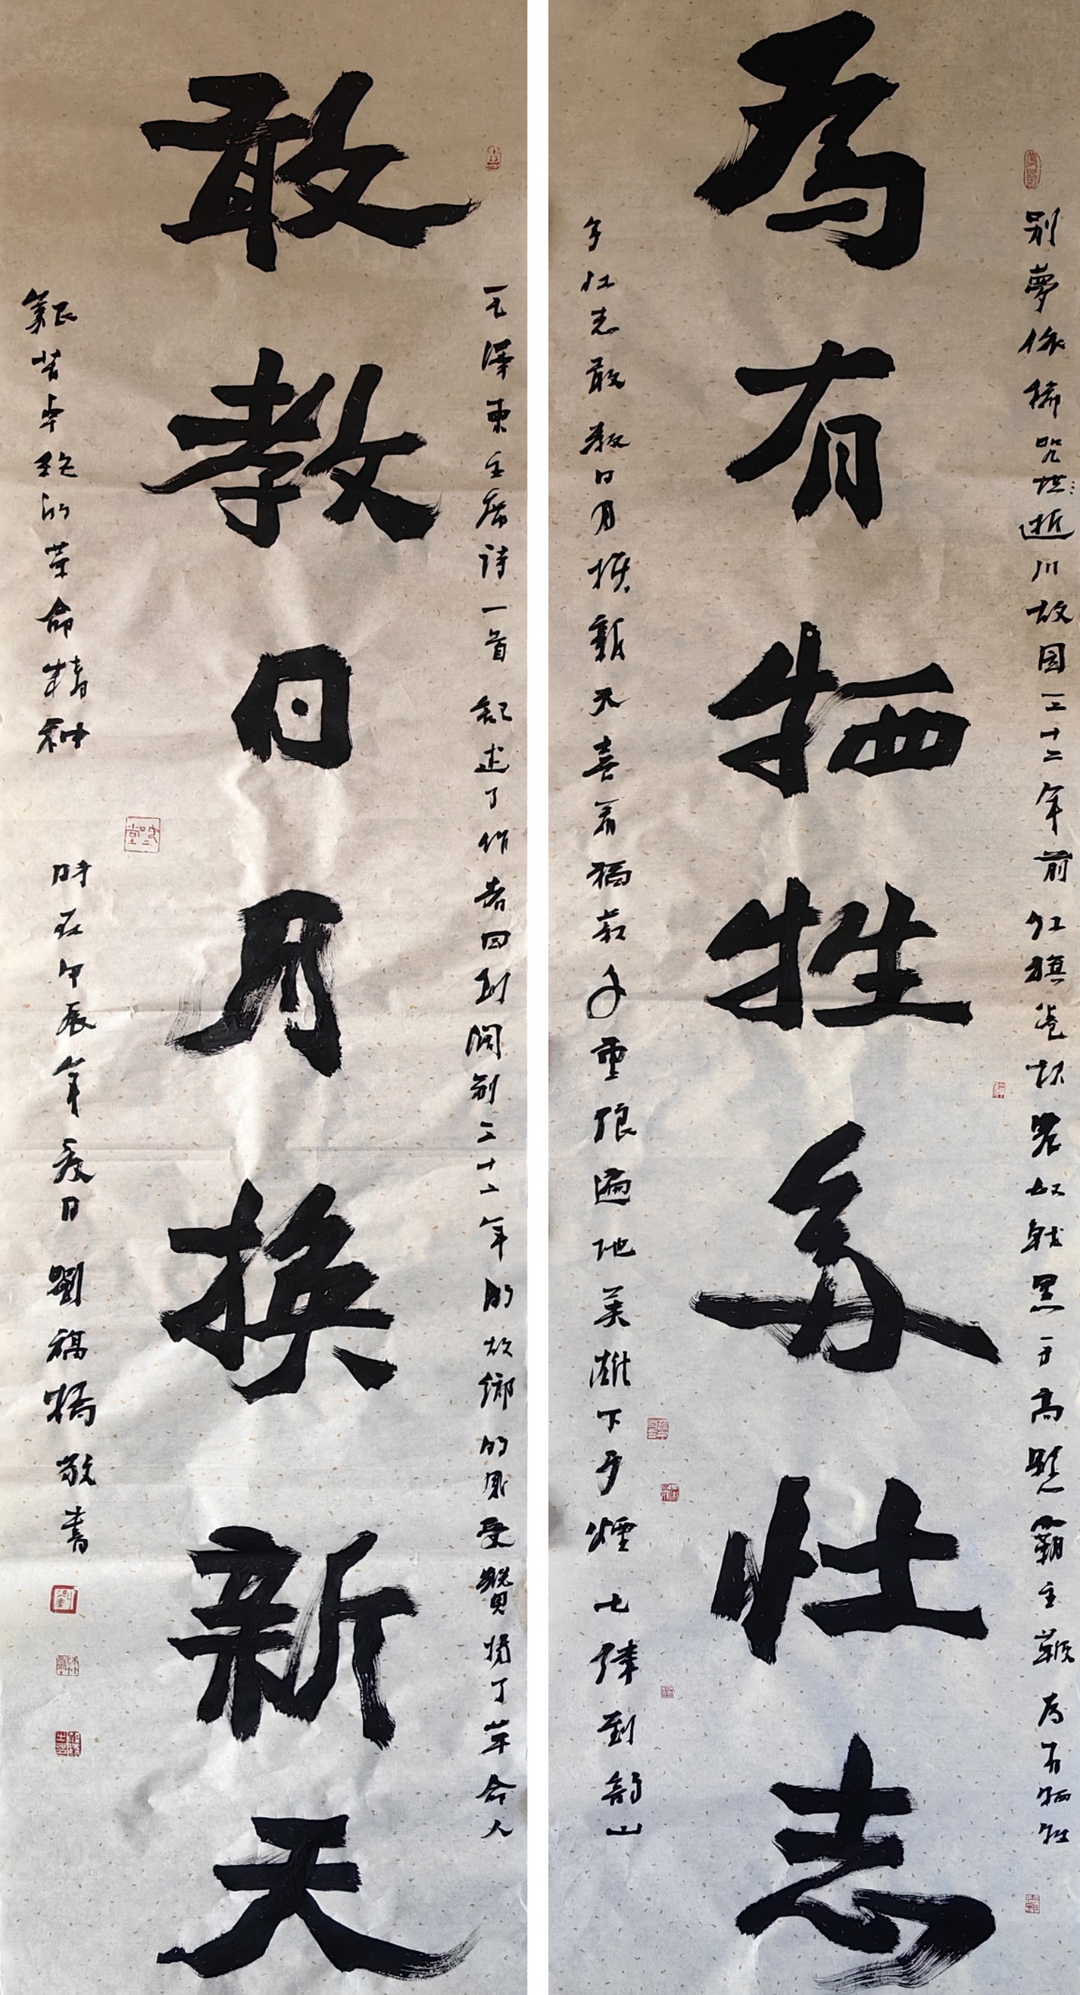 为有牺牲多壮志
别夢依稀咒逝川故园三十二年前红旗卷起农奴戟黑手高悬霸主鞭为有牺牲
多壮志敢教日月换新天喜看稻菽千重浪遍地英雄下夕烟七律到韶山
敢教日月换新天
毛澤東主席诗一首 記述了作者回到阔别三十二年的故鄉的感受赞揚了革命人
艱苦卓绝的革命精神
時在甲辰年夏日劉福橋敬書